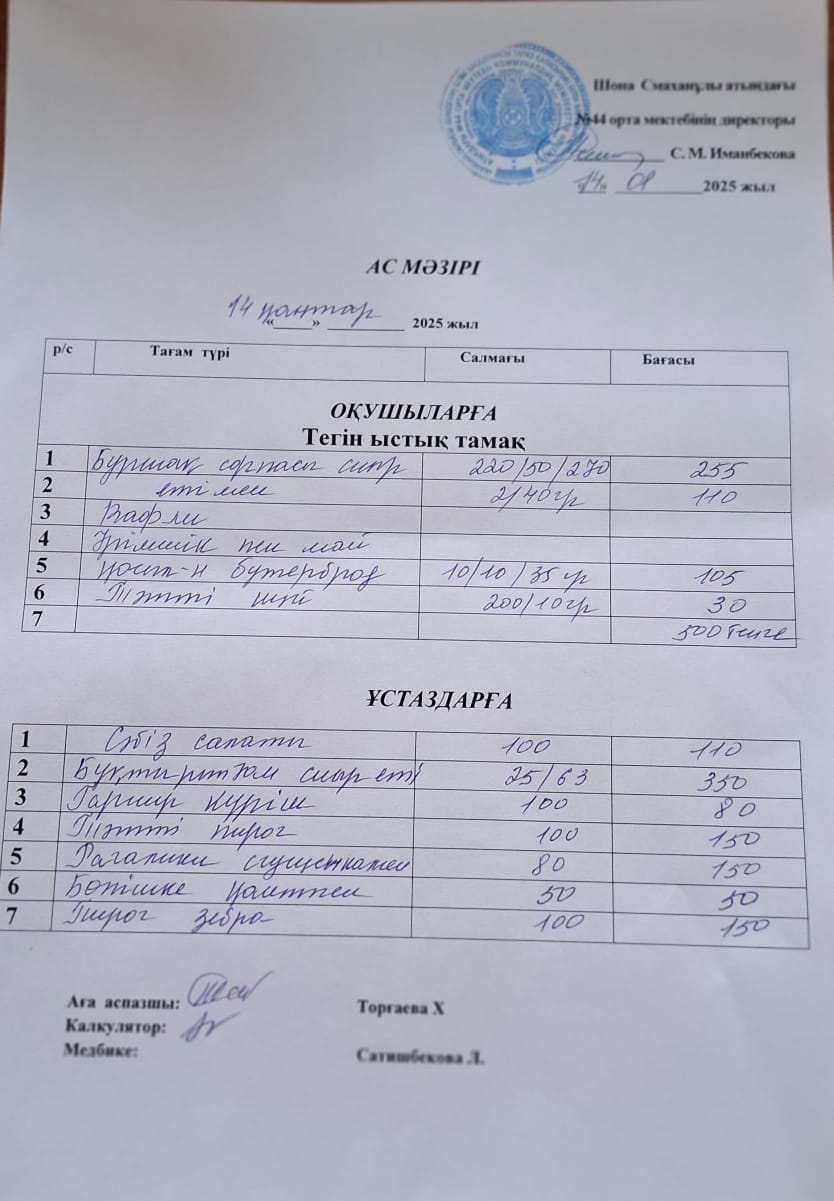 Шона Смаханұлы атындағы
№44 орта мектебінің директоры
С. М. Иманбекова
"14" 01 2025 жыл
АС МӘЗІРІ
«14» қаңтар 2025 жыл
р/с Тағам түрі Салмағы Бағасы
ОҚУШЫЛАРҒА
Тегін ыстық тамақ
1 Бұршақ сорпасы сиыр 220/50/270 255
2 етімен 2/40гр 110
3 Вафли
4 Ірімшік пен май
5 қосыл-н бутерброд 10/10/35 гр 105
6 Тәтті шәй 200/10гр 30
7 500 теңге
ҰСТАЗДАРҒА
1 Сәбіз салаты 100 110
2 Бұқтырылған сиыр еті 25/63 350
3 Гарнир күріш 100 80
4 Тәтті пирог 100 150
5 Рагалики сгущенкамен 80 150
6 Бөтішке қантпен 50 50
7 Пирог зебра 100 150
Аға аспазшы: Торғаева Х
Калкулятор:
Медбике: Сатишбекова Л.